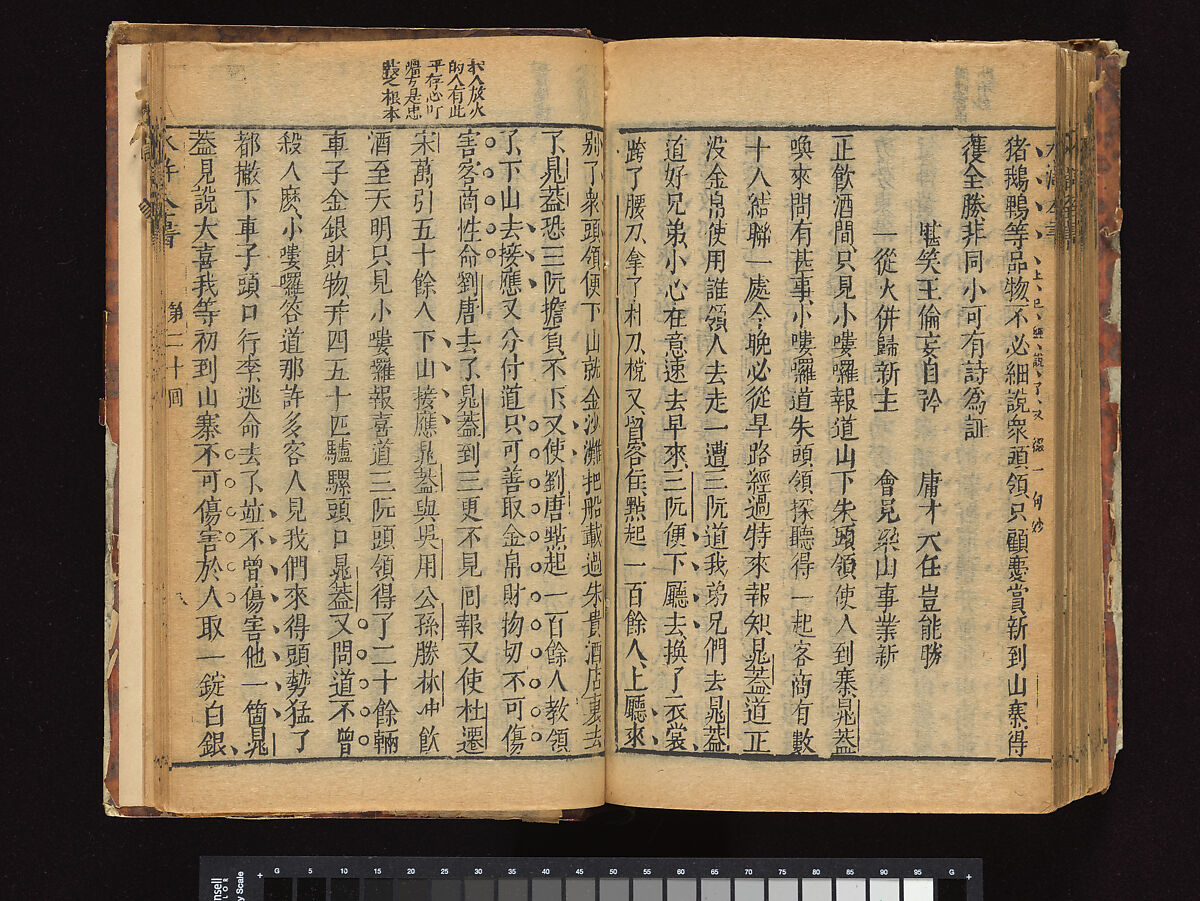 猪鵝鴨等品物不必細說衆頭領只顧慶賞新到山寨得
獲全勝非同小可有詩為証
堪笑王倫妄自矜　庸才大任豈能勝
一從火併歸新主　會見梁山事業新
正飲酒間只見小嘍囉報道山下朱頭領使人到寨晁蓋
喚來問有甚事小嘍囉道朱頭領探聽得一起客商有數
十人結聯一處今晚必從旱路經過特來報知晁蓋道正
沒金帛使用誰領人去走一遭三阮道我弟兄們去晁蓋
道好兄弟小心在意速去早來三阮便下廳去換了衣裳
跨了腰刀拿了朴刀欓又留客住點起一百餘人上廳來
殺人放火
的人有此
平存心叮
囑方是忠
義之根本
別了衆頭領便下山就金沙灘把船載過朱貴酒店裏去
了晁蓋恐三阮擔負不下又使劉唐點起一百餘人教領
了下山去接應又分付道只可善取金帛財物切不可傷
害客商性命劉唐去了晁蓋到三更不見回報又使杜遷
宋萬引五十餘人下山接應晁蓋與吳用公孫勝林冲飲
酒至天明只見小嘍囉報喜道三阮頭領得了二十餘輛
車子金銀財物并四五十匹驢騾頭口晁蓋又問道不曾
殺人麽小嘍囉答道那許多客人見我們來得頭勢猛了
都撇下車子頭口行李逃命去了並不曾傷害他一箇晁
蓋見說大喜我等初到山寨不可傷害於人取一錠白銀
水滸全書　第二十回